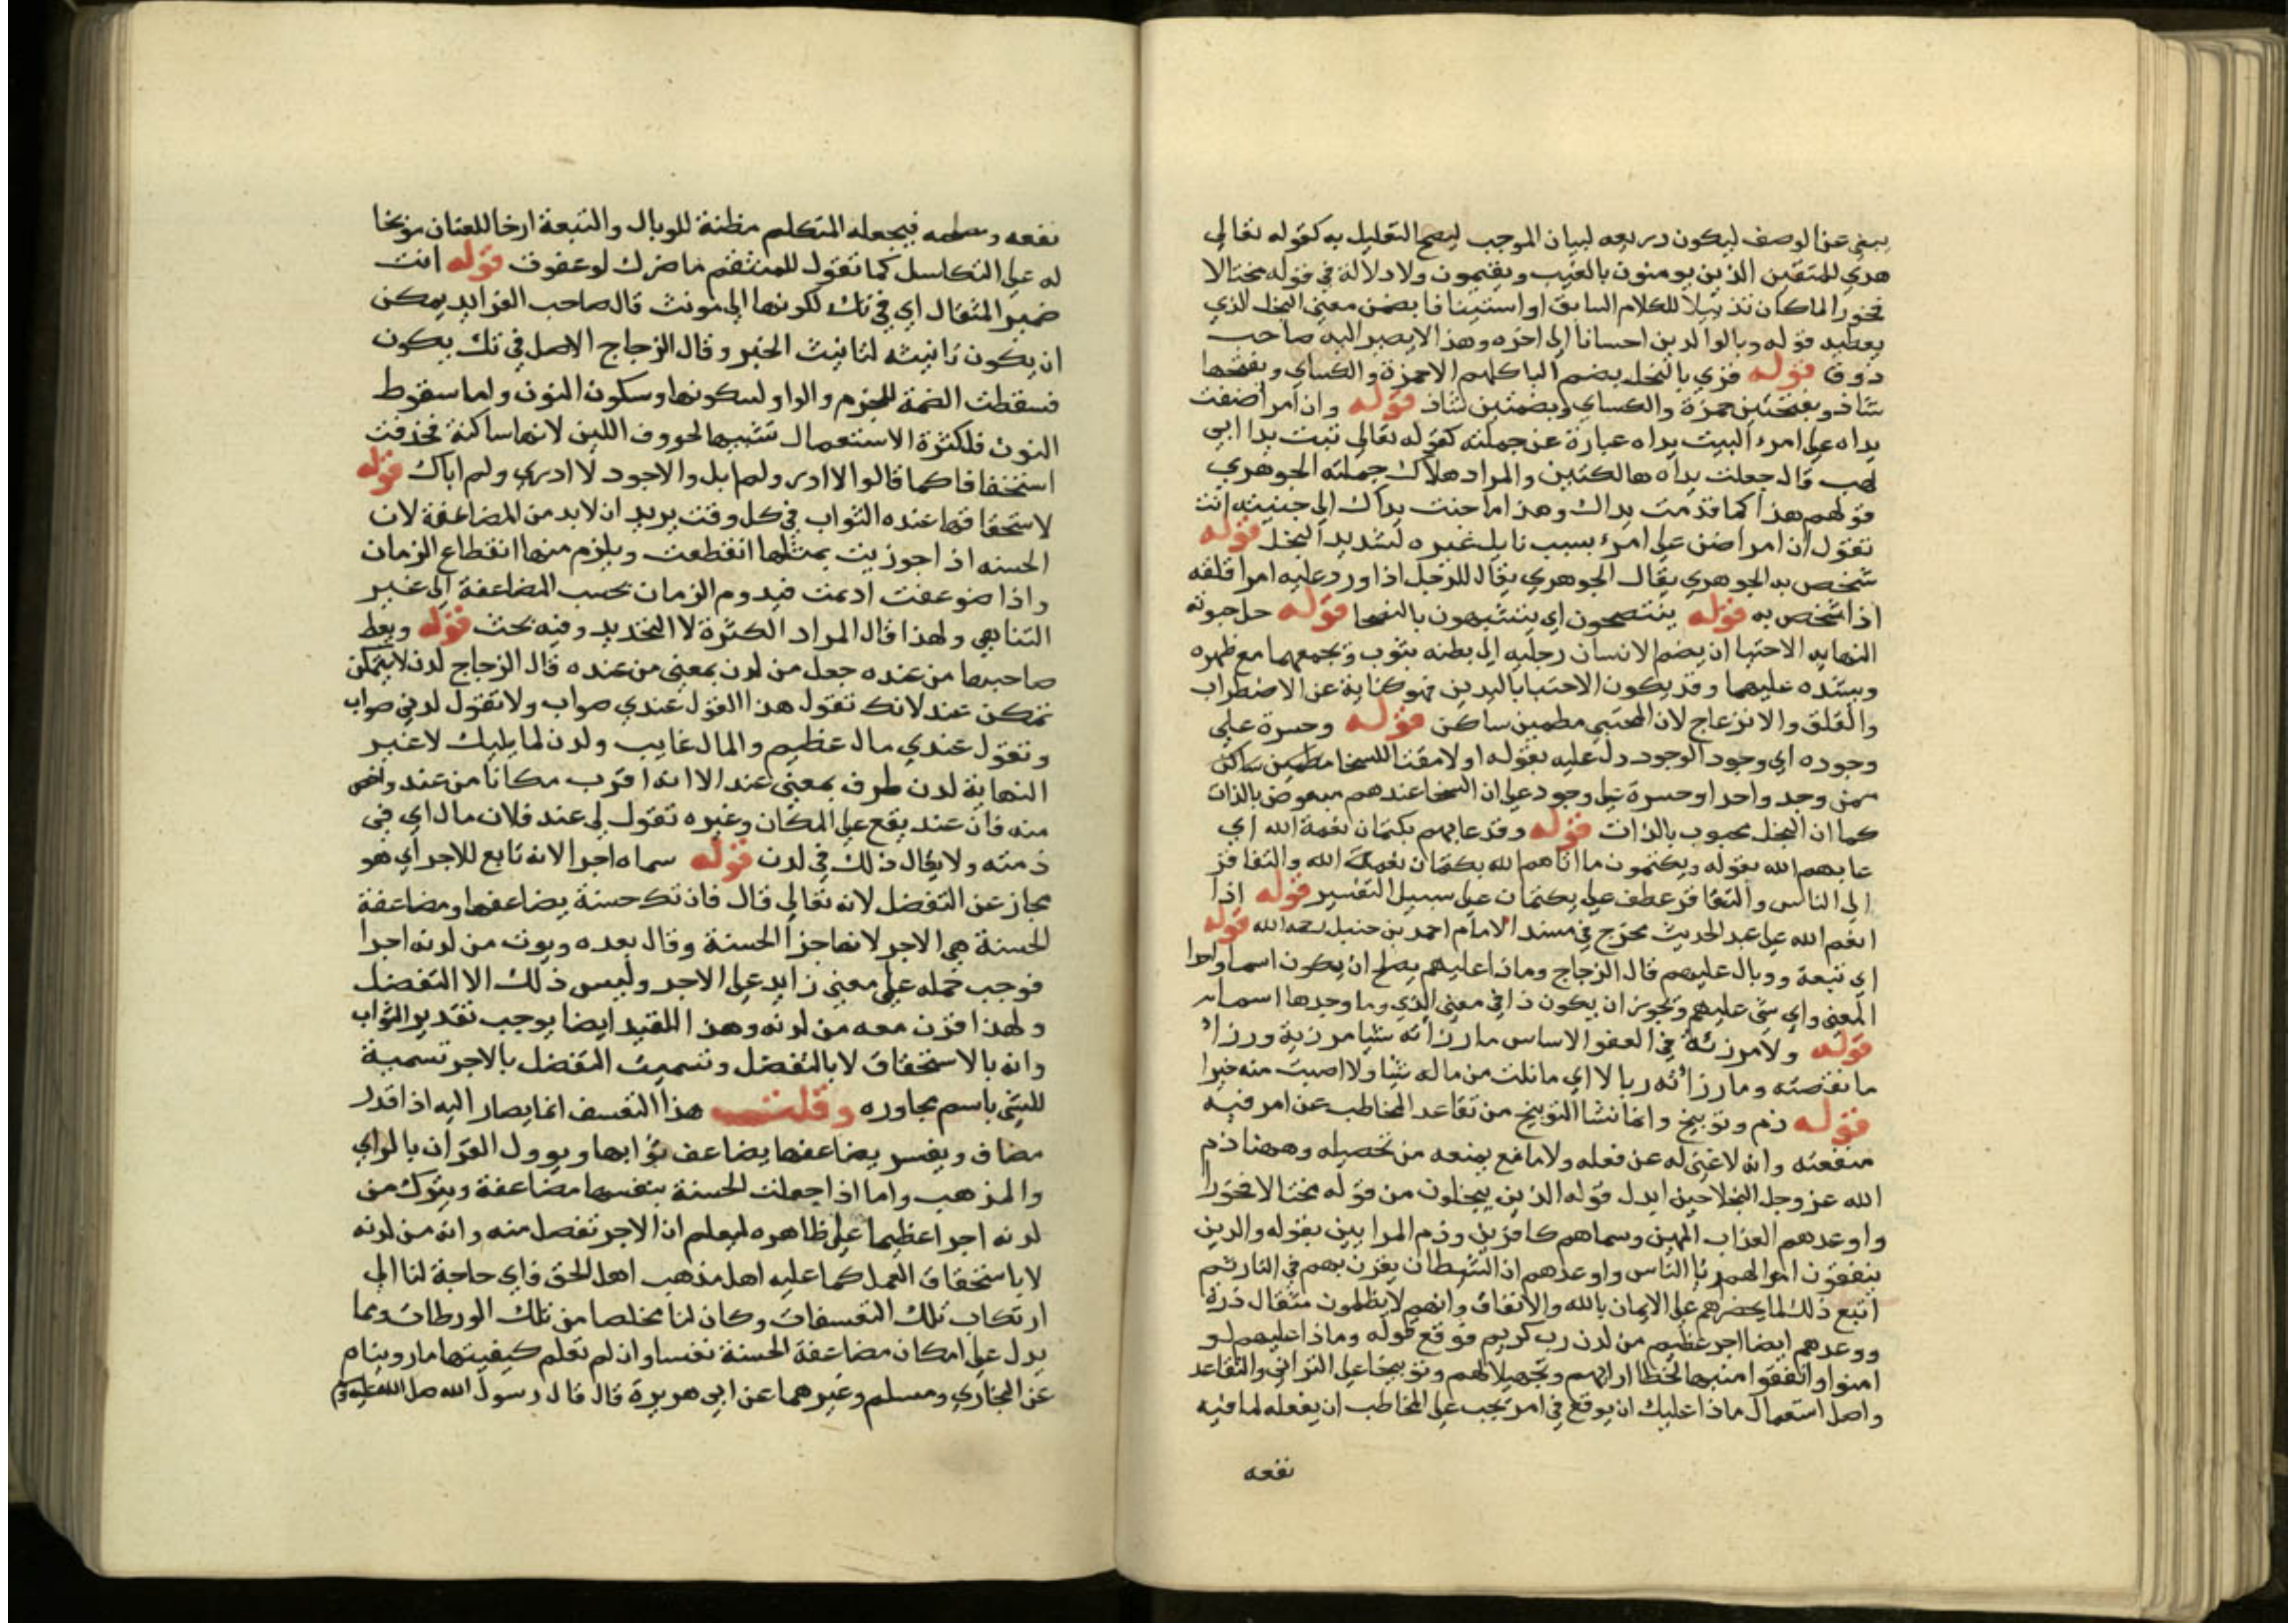 ينبغي عن الوصف ليكون ذريعه لبيان الموجب ليصح التعليل به كقوله تعالي
هدي للمتقين الذين يومنون بالغيب ويقيمون ولا دلالة في قوله مختالا
فخورا لما كان تذييلا للكلام السابق او استينافا بضمن معني البخل الذي
يعطيه قوله وبالوالدين احسانا الي اخره وهذا لا يصير اليه صاحب
ذوق قوله قري بالبخل بضم الباكلهم الا حمزة والكساي وبفتحها
شاذ وبفتحتين حمزة والكساي وبضمتين شاذ قوله وان امرا ضنت
يداه علي امرء البيت يداه عبارة عن جملته كقوله تعالي تبت يدا ابي
لهب قال جعلت يداه هالكتين والمراد هلاك جملته الجوهري
قولهم هذا كما قدمت يداك وهذا ما جنت يداك الي جنيته انت
تقول ان امرا ضن علي امرء بسبب نايل غيره لشديد البخل قوله
شخص به الجوهري يقال الجوهري يقال للرجل اذا ورد عليه امرا قلقه
اذا شخص به قوله ينتصحون اي يتشبهون بالنصحا قوله حل حبوته
النهايه الاحتبا ان يضم الانسان رجليه الي بطنه بثوب ويجمعهما مع ظهره
ويشده عليهما وقد يكون الاحتبا باليدين فهو كناية عن الاضطراب
والقلق والانزعاج لان المحتبي مطمين ساكن قوله وحسرة علي
وجوده اي وجود الوجود دل عليه بقوله اولا مقتا للسخا مطمين ساكن
ممن وجد واحدا وحسرة علي وجود علي ان السخا عندهم مبغوض بالذات
كما ان البخل محبوب بالذات قوله وقد عابهم بكتمان نعمة الله اي
عابهم الله بقوله ويكتمون ما اتاهم الله بكتمان نعمة الله والتفاقر
الي الناس والتفاقر عطف علي بكتمان علي سبيل التفسير قوله اذا
انعم الله علي عبد الحديث مخرج في مسند الامام احمد بن حنبل رحمه الله قوله
اي تبعة ووبال عليهم قال الزجاج وماذا عليهم يصلح ان يكون اسما واحدا
المعني واي شي عليهم ويجوز ان يكون ذا في معني الذي وما وحدها اسما
قوله ولا مرزئة في العفو الاساس ما رزأته شيا مرزية ورزأ
ما نقصته وما رزأته زبالا اي ما نلت من ماله شيا ولا اصبت منه خيرا
قوله ذم وتوبيخ وانما نشا التوبيخ من تقاعد المخاطب عن امر فيه
منفعته وانه لا غني له عن فعله ولا مانع يمنعه من تحصيله وههنا ذم
الله عز وجل البخلا حين ابدل قوله الذين يبخلون من قوله مختالا فخورا
واوعدهم العذاب المهين وسماهم كافرين وذم المرايين بقوله والذين
ينفقون اموالهم ريا الناس واوعدهم ان الشيطان يقرن بهم في النار ثم
اتبع ذلك لما يحضرهم علي الايمان بالله والانفاق وانهم لا يظلمون مثقال ذرة
ووعدهم ايضا اجر عظيم من لدن رب كريم فوقع قوله وماذا عليهم لو
امنوا وانفقوا منبها لخطا ارايهم وتجهيلا لهم وتوبيخا علي التواني والتقاعد
واصل استعمال ماذا عليك ان يوقع في امر يجب علي المخاطب ان يفعله لما فيه
نفعه
نفعه فيجعله المتكلم مظنة للوبال والتبعة ارخا للعنان موبخا
له علي التكاسل كما تقول للمنتقم ما ضرك لو عفوت قوله انث
ضمير المثقال اي في تك لكونها الي مونث قال صاحب الفرايد يمكن
ان يكون تانيثه لتانيث الخبر وقال الزجاج الاصل في تك يكون
فسقطت الضمة للجزم والواو لسكونها وسكون النون واما سقوط
النون فلكثرة الاستعمال تشبيها لحروف اللين لانها ساكنة فحذفت
استخفافا كما قالوا لا ادر ولم ابل والاجود لا ادري ولم اباك قوله
لاستحقاقها عنده الثواب في كل وقت يريد ان لابد من المضاعفة لان
الحسنه اذا جوزيت بمثلها انقطعت ويلزم منها انقطاع الزمان
واذا ضوعفت ادمت فيدوم الزمان بحسب المضاعفة الي غير
التناهي ولهذا قال المراد الكثرة لا التحديد وفيه بحث قوله ويعط
صاحبها من عنده جعل من لدن بمعني من عنده قال الزجاج لدن لا يتمكن
تمكن عند لانك تقول هذا القول عندي صواب ولا تقول لدني صواب
وتقول عندي مال عظيم والمال غايب ولدن لما يليك لا غير
النهاية لدن ظرف بمعني عند الا انه اقرب مكانا من عند واخص
منه فان عند يقع علي المكان وغيره تقول لي عند فلان مال اي في
ذمته ولا يقال ذلك في لدن قوله سماه اجرا لانه تابع للاجر اي هو
مجاز عن التفضل لانه تعالي قال فان تك حسنة يضاعفها ومضاعفة
الحسنة هي الاجر لانها جزأ الحسنة وقال بعده ويوت من لدنه اجرا
فوجب حمله علي معني زايد علي الاجر وليس ذلك الا التفضل
ولهذا قرن معه من لدنه وهذا المقيد ايضا يوجب تقدير الثواب
وانه بالاستحقاق لا بالتفضل وتسميت التفضل بالاجر تسمية
للشي باسم مجاوره وقلت هذا التعسف انما يصار اليه اذا قدر
مضاف ويفسر يضاعفها يضاعف ثوابها ويوول القران بالراي
والمذهب واما اذا جعلت الحسنة بنفسها مضاعفة ويترك من
لدنه اجرا عظيما علي ظاهره ليعلم ان الاجر تفضل منه وانه من لدنه
لا باستحقاق العمل كما عليه اهل مذهب اهل الحق فاي حاجة لنا الي
ارتكاب تلك التعسفات وكان لنا مخلصا من تلك الورطات ومما
يدل علي امكان مضاعفة الحسنة نفسا وان لم تعلم كيفيتها ما روينا
عن البخاري ومسلم وغيرهما عن ابي هريرة قال قال رسول الله صل الله عليه وسلم